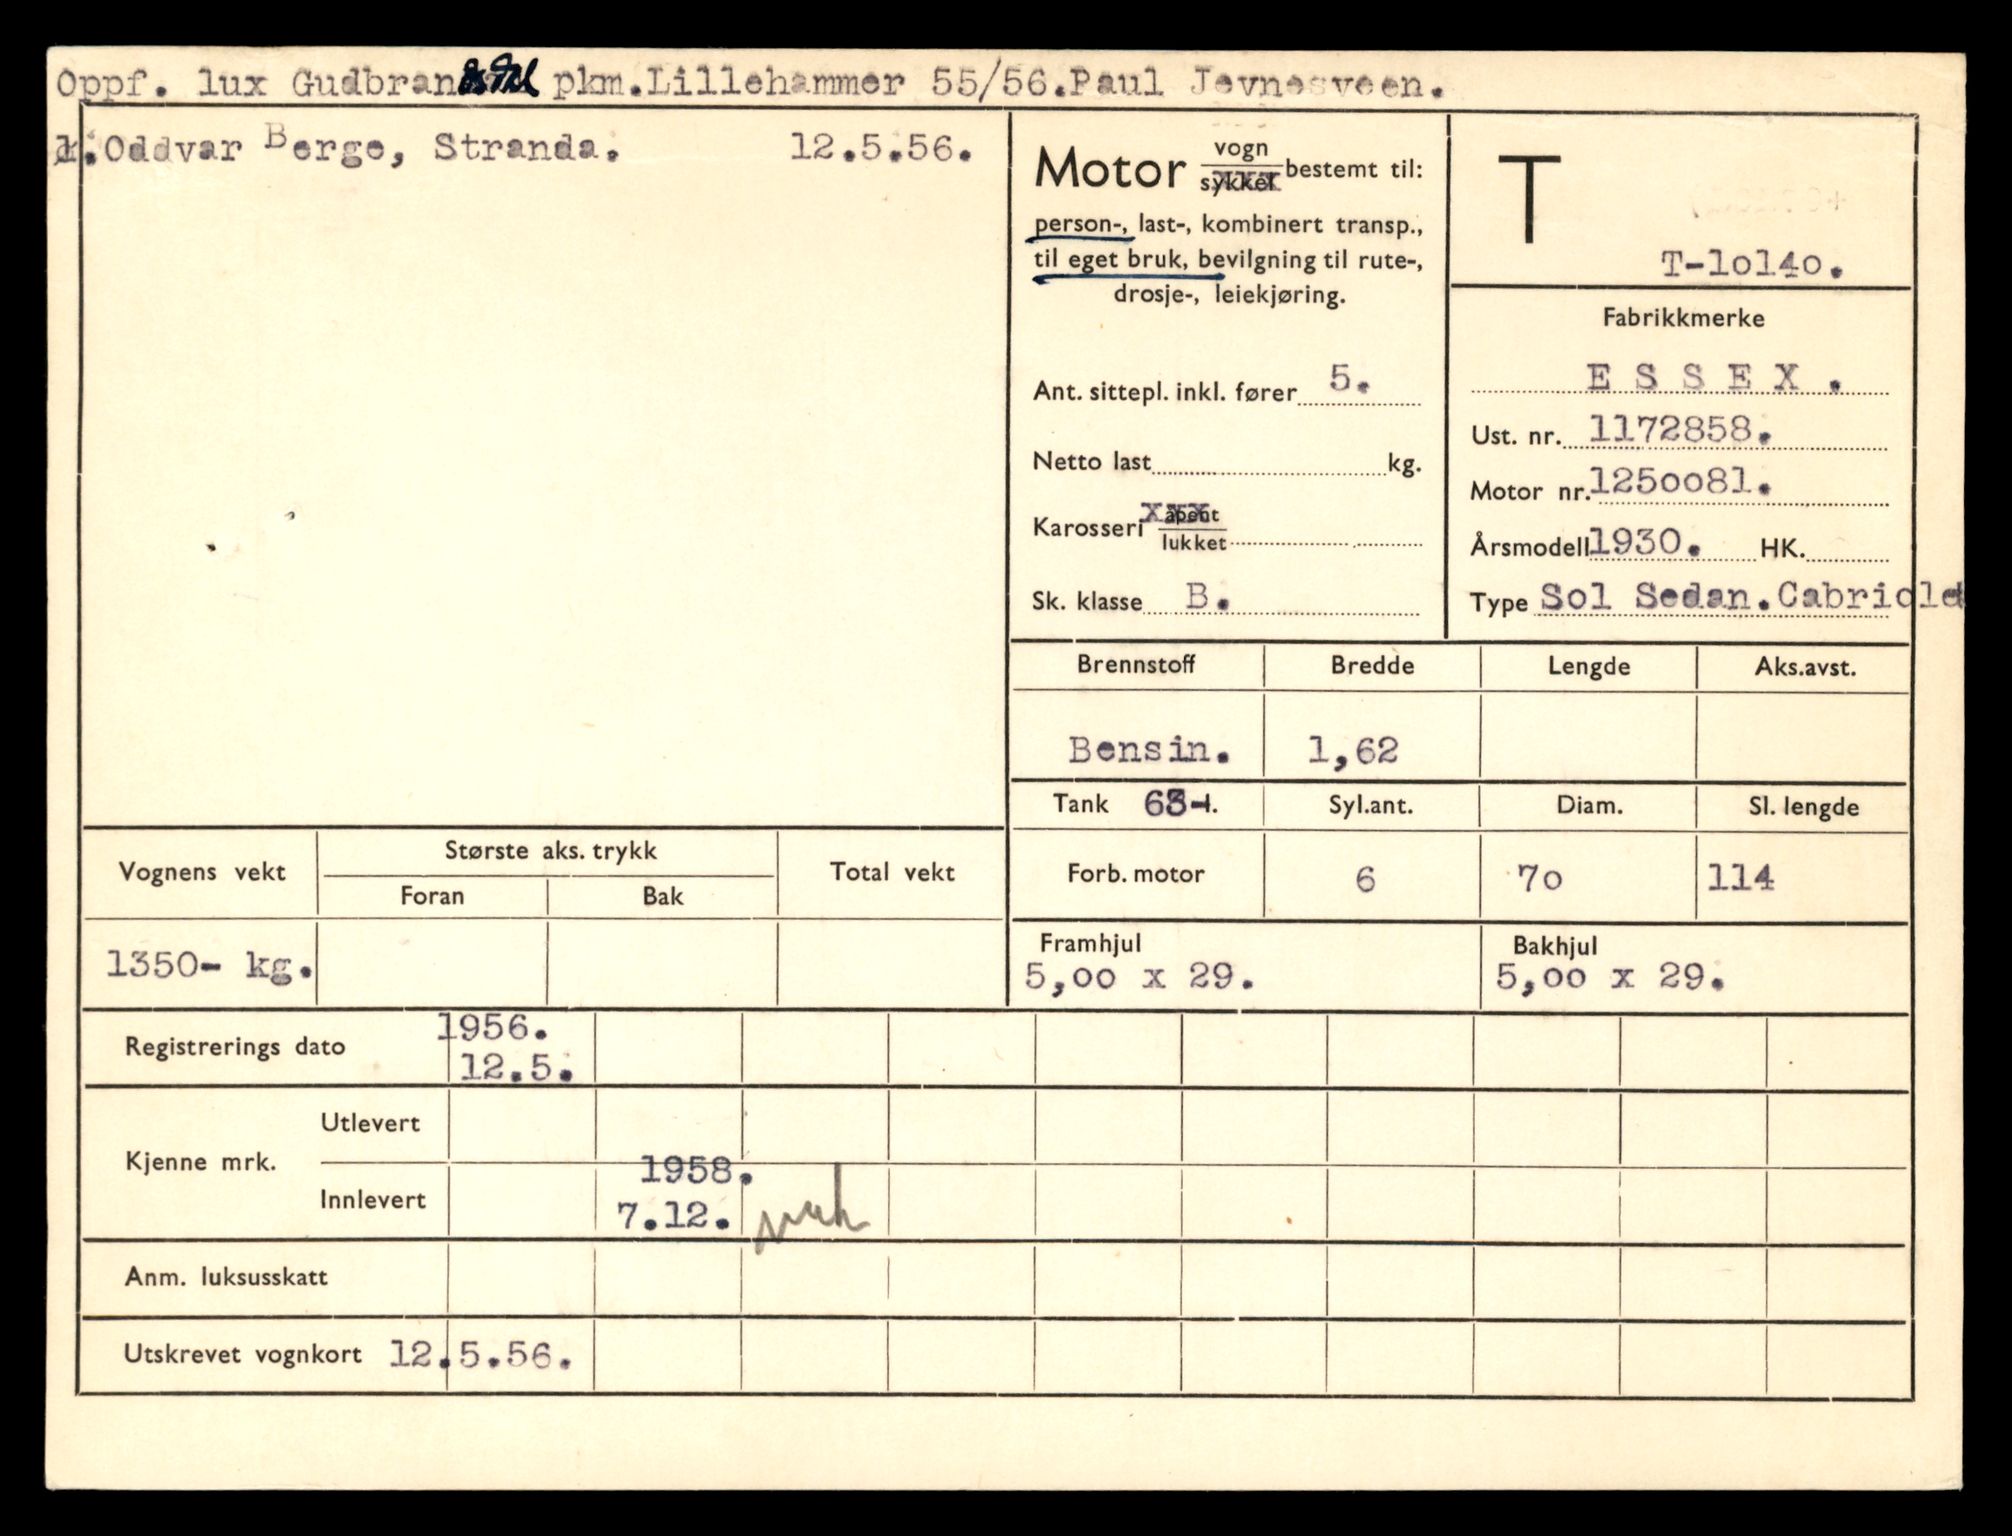 Oppf. lux Gudbrandsdal pkm.Lillehammer 55/56.Paul Jevnesveen.
1.Oddvar Berge, Stranda. 12.5.56.
Motor vogn
sykkel bestemt til:
person-, last-, kombinert transp.,
til eget bruk, bevilgning til rute-,
drosje-, leiekjøring.
Ant. sittepl. inkl. fører 5.
Netto last kg.
Karosseri åpent
lukket
Sk. klasse B.
T
T-10140.
Fabrikkmerke
E S S E X .
Ust. nr. 1172858.
Motor nr. 1250081.
Årsmodell 1930. HK.
Type Sol Sedan.Cabriolet
Brennstoff Bredde Lengde Aks.avst.
Bensin. 1,62
Tank 63-l. Syl.ant. Diam. Sl. lengde
Forb. motor 6 70 114
Framhjul Bakhjul
5,00 x 29. 5,00 x 29.
Vognens vekt Største aks. trykk Total vekt
Foran Bak
1350- kg.
Registrerings dato 1956.
12.5.
Kjenne mrk.
Utlevert
Innlevert 1958.
7.12.
Anm. luksusskatt
Utskrevet vognkort 12.5.56.